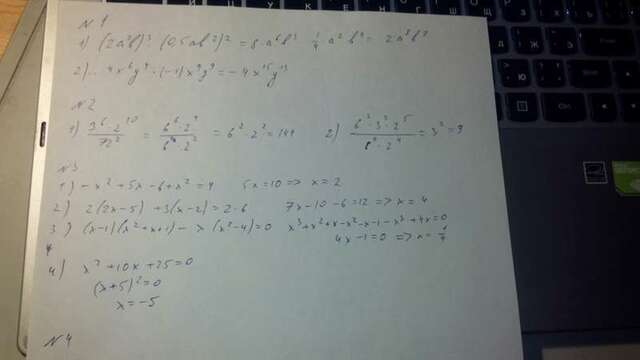 N 1
1) (2a²b)³ · (0,5ab³)² = 8·a⁶b³ · 1/4 a² b⁶ = 2a⁸b⁹
2) .. 4x⁶y⁴ · (-1)x⁹y⁹ = -4x¹⁵y¹³
N 2
1) 3⁶·2¹⁰ / 72² = 6⁶·2⁴ / 6⁴·2² = 6²·2² = 144 2) 6²·3²·2⁵ / = 3² = 9
N 3
1) -x² + 5x - 6 + x² = 4 5x = 10 => x = 2
2) 2(2x-5) + 3(x-2) = 2·6 7x - 10 - 6 = 12 => x = 4
3) (x-1)(x²+x+1) - x(x²-4) = 0 x³+x²+x-x²-x-1-x³+4x=0
4 4x-1=0 => x=1/4
4) x² + 10x + 25 = 0
(x+5)² = 0
x = -5
N 4